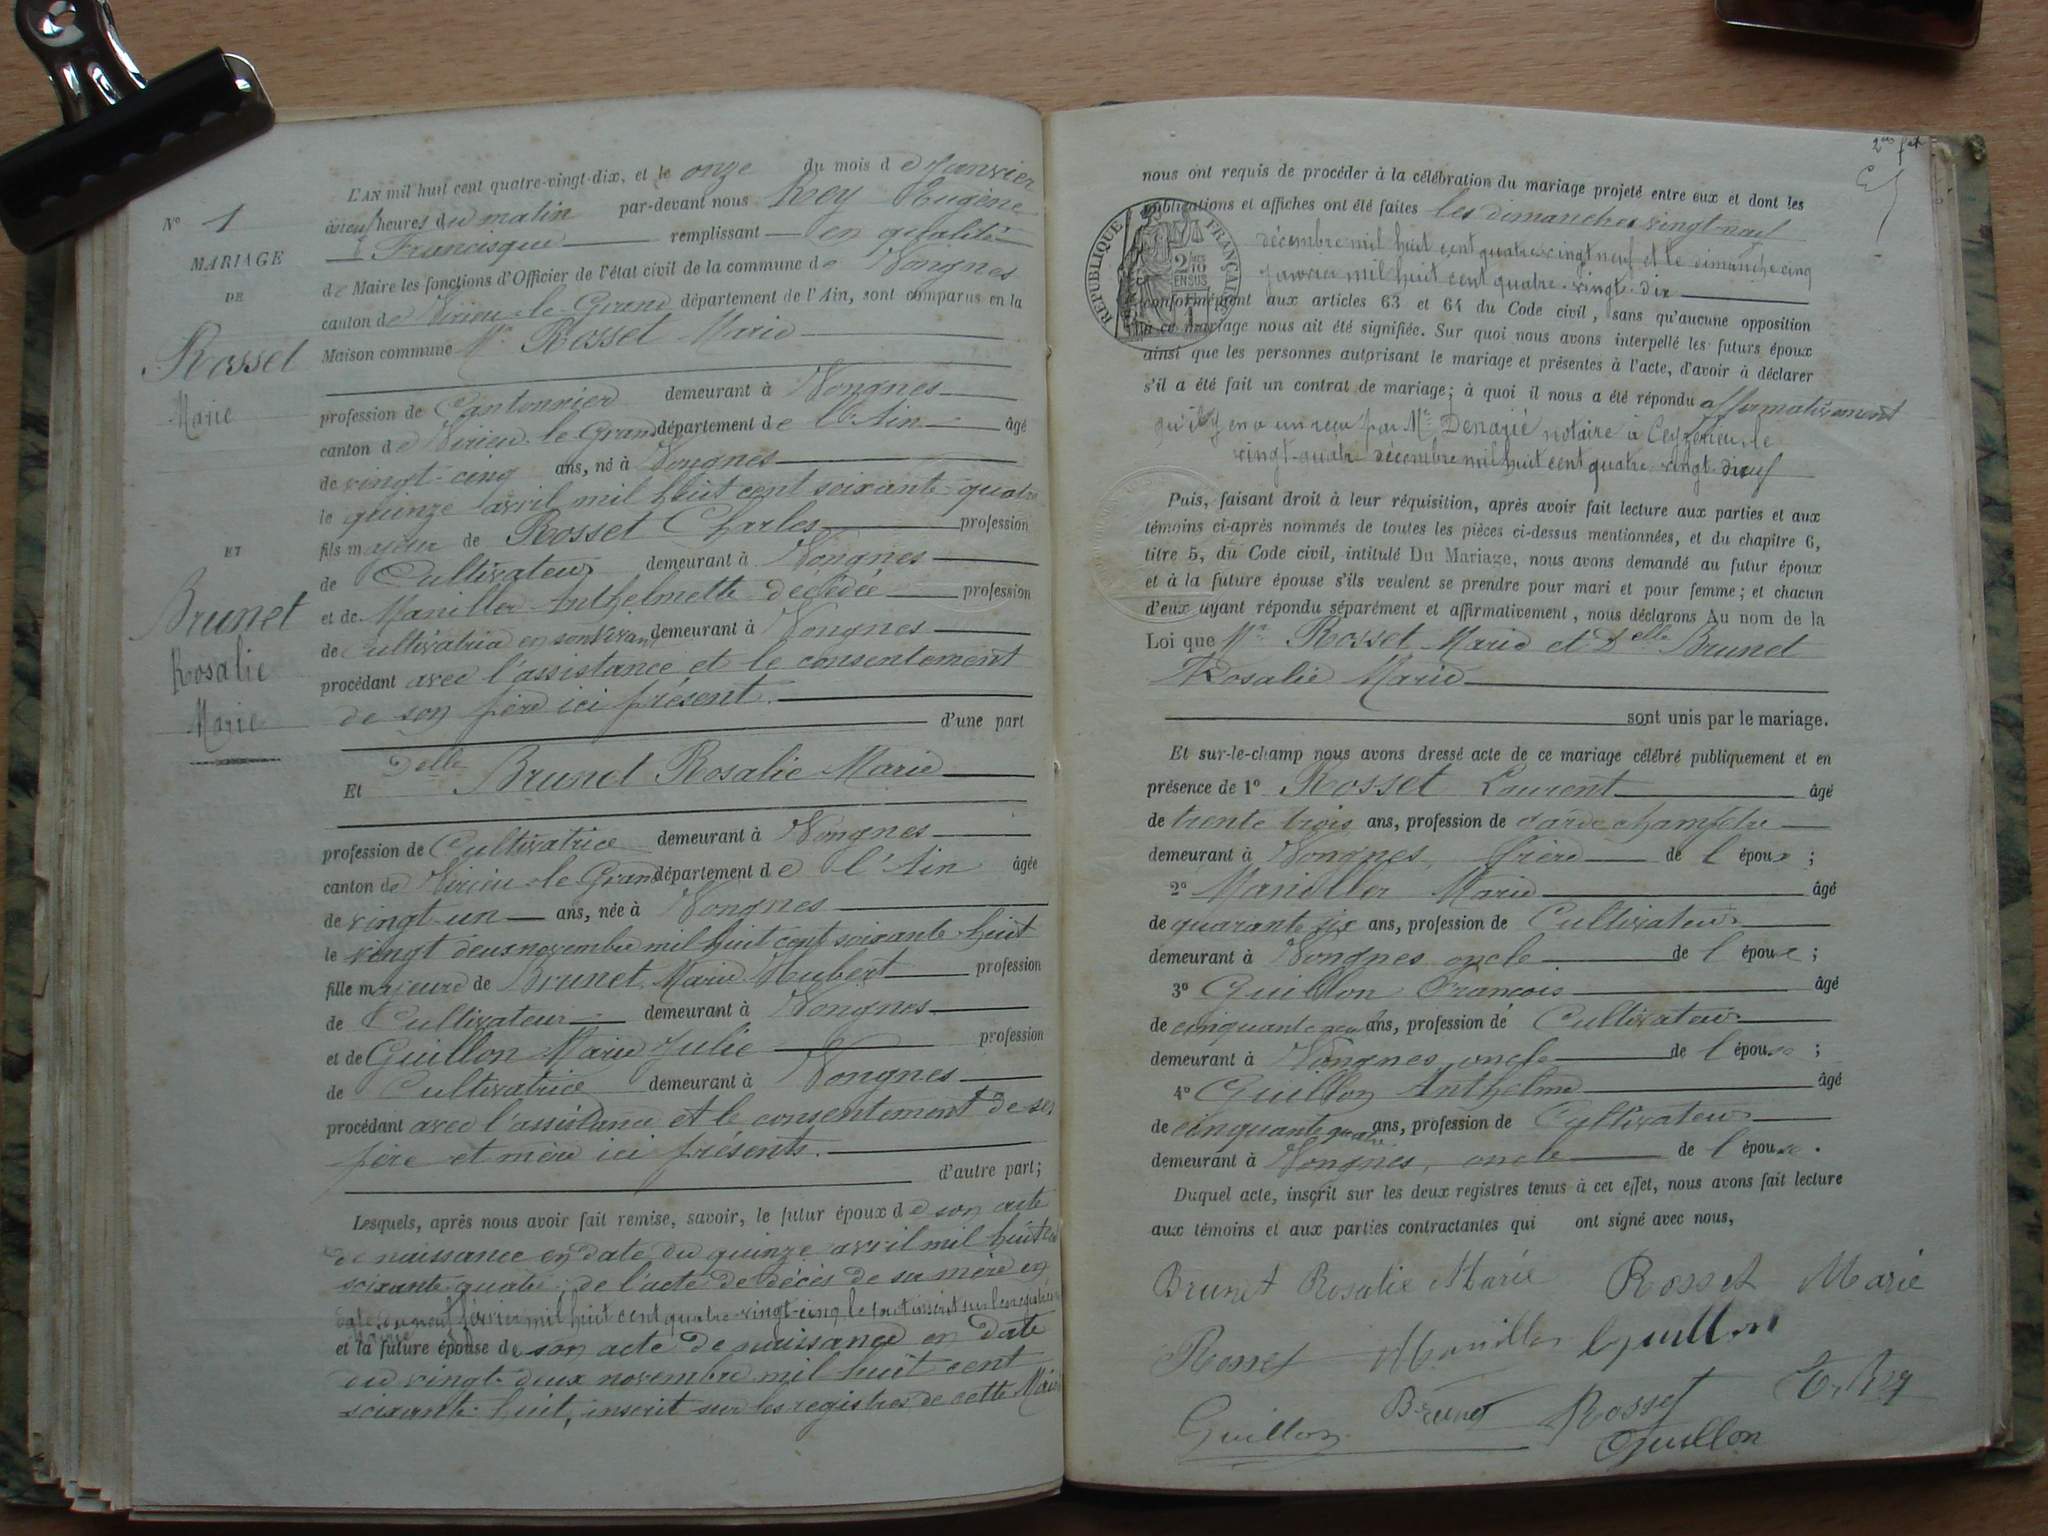 N° 1
MARIAGE
DE
Rosset
Marie
ET
Brunet
Rosalie
Marie
L'AN mil huit cent quatre-vingt-dix, et le onze du mois de Janvier
à neuf heures du matin par-devant nous Rey Eugène
Francisque remplissant en qualité
de Maire les fonctions d'Officier de l'état civil de la commune de Vongnes
canton de Virieu-le-Grand département de l'Ain, sont comparus en la
Maison commune Mr Rosset Marie
profession de Cantonnier demeurant à Vongnes
canton de Virieu-le-Grand département de l'Ain âgé
de vingt-cinq ans, né à Vongnes
le quinze avril mil huit cent soixante-quatre
fils majeur de Rosset Charles profession
de Cultivateur demeurant à Vongnes
et de Maniller Anthelmette décédée profession
de Cultivatrice en son vivant demeurant à Vongnes
procédant avec l'assistance et le consentement
de son père ici présent.
d'une part
Et Delle Brunet Rosalie Marie
profession de Cultivatrice demeurant à Vongnes
canton de Virieu-le-Grand département de l'Ain âgée
de vingt-un ans, née à Vongnes
le vingt deux novembre mil huit cent soixante-huit
fille majeure de Brunet Marie Hubert profession
de Cultivateur demeurant à Vongnes
et de Guillon Marie Julie profession
de Cultivatrice demeurant à Vongnes
procédant avec l'assistance et le consentement de ses
père et mère ici présents.
d'autre part;
Lesquels, après nous avoir fait remise, savoir, le futur époux de son acte
de naissance en date du quinze avril mil huit cent
soixante-quatre; de l'acte de décès de sa mère en
date du neuf février mil huit cent quatre-vingt-cinq le tout inscrit sur les registres
et la future épouse de son acte de naissance en date
du vingt-deux novembre mil huit cent
soixante-huit, inscrit sur les registres de cette Mairie
2me fet
nous ont requis de procéder à la célébration du mariage projeté entre eux et dont les
publications et affiches ont été faites les dimanches vingt-neuf
décembre mil huit cent quatre-vingt neuf et le dimanche cinq
janvier mil huit cent quatre-vingt-dix
RÉPUBLIQUE FRANÇAISE
2/10 EN SUS
conformément aux articles 63 et 64 du Code civil, sans qu'aucune opposition
à ce mariage nous ait été signifiée. Sur quoi nous avons interpellé les futurs époux
ainsi que les personnes autorisant le mariage et présentes à l'acte, d'avoir à déclarer
s'il a été fait un contrat de mariage; à quoi il nous a été répondu affirmativement
qu'il y en a un reçu par Me Denarié notaire à Ceyzérieu le
vingt-quatre décembre mil huit cent quatre-vingt-neuf
Puis, faisant droit à leur réquisition, après avoir fait lecture aux parties et aux
témoins ci-après nommés de toutes les pièces ci-dessus mentionnées, et du chapitre 6,
titre 5, du Code civil, intitulé Du Mariage, nous avons demandé au futur époux
et à la future épouse s'ils veulent se prendre pour mari et pour femme; et chacun
d'eux ayant répondu séparément et affirmativement, nous déclarons Au nom de la
Loi que Mr Rosset Marie et Delle Brunet
Rosalie Marie
sont unis par le mariage.
Et sur-le-champ nous avons dressé acte de ce mariage célébré publiquement et en
présence de 1° Rosset Laurent âgé
de trente trois ans, profession de Garde champêtre
demeurant à Vongnes, frère de l'époux;
2° Maniller Marie âgé
de quarante six ans, profession de Cultivateur
demeurant à Vongnes oncle de l'époux;
3° Guillon François âgé
de cinquante neuf ans, profession de Cultivateur
demeurant à Vongnes, oncle de l'épouse;
4° Guillon Anthelme âgé
de cinquante quatre ans, profession de Cultivateur
demeurant à Vongnes, oncle de l'épouse.
Duquel acte, inscrit sur les deux registres tenus à cet effet, nous avons fait lecture
aux témoins et aux parties contractantes qui ont signé avec nous,
Brunet Rosalie Marie Rosset Marie
Rosset Maniller Guillon
Brunet Rosset E. Rey
Guillon Guillon